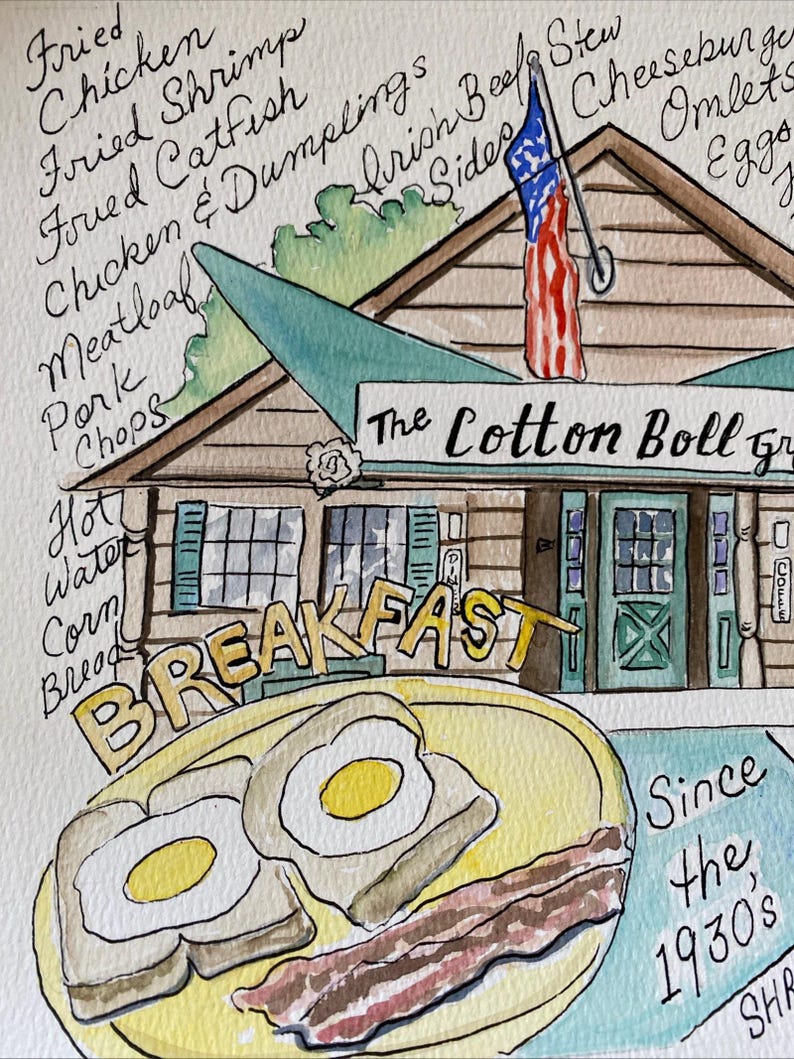 Fried
Chicken
Fried Shrimp
Fried Catfish
Chicken & Dumplings
Meatloaf
Pork
Chops
Hot
Water
Corn
Bread
Irish Beef Stew
Sides
Cheeseburge
Omlets
Eggs
The Cotton Boll Gr
DINER
COFFEE
BREAKFAST
Since
the
1930's
SHR